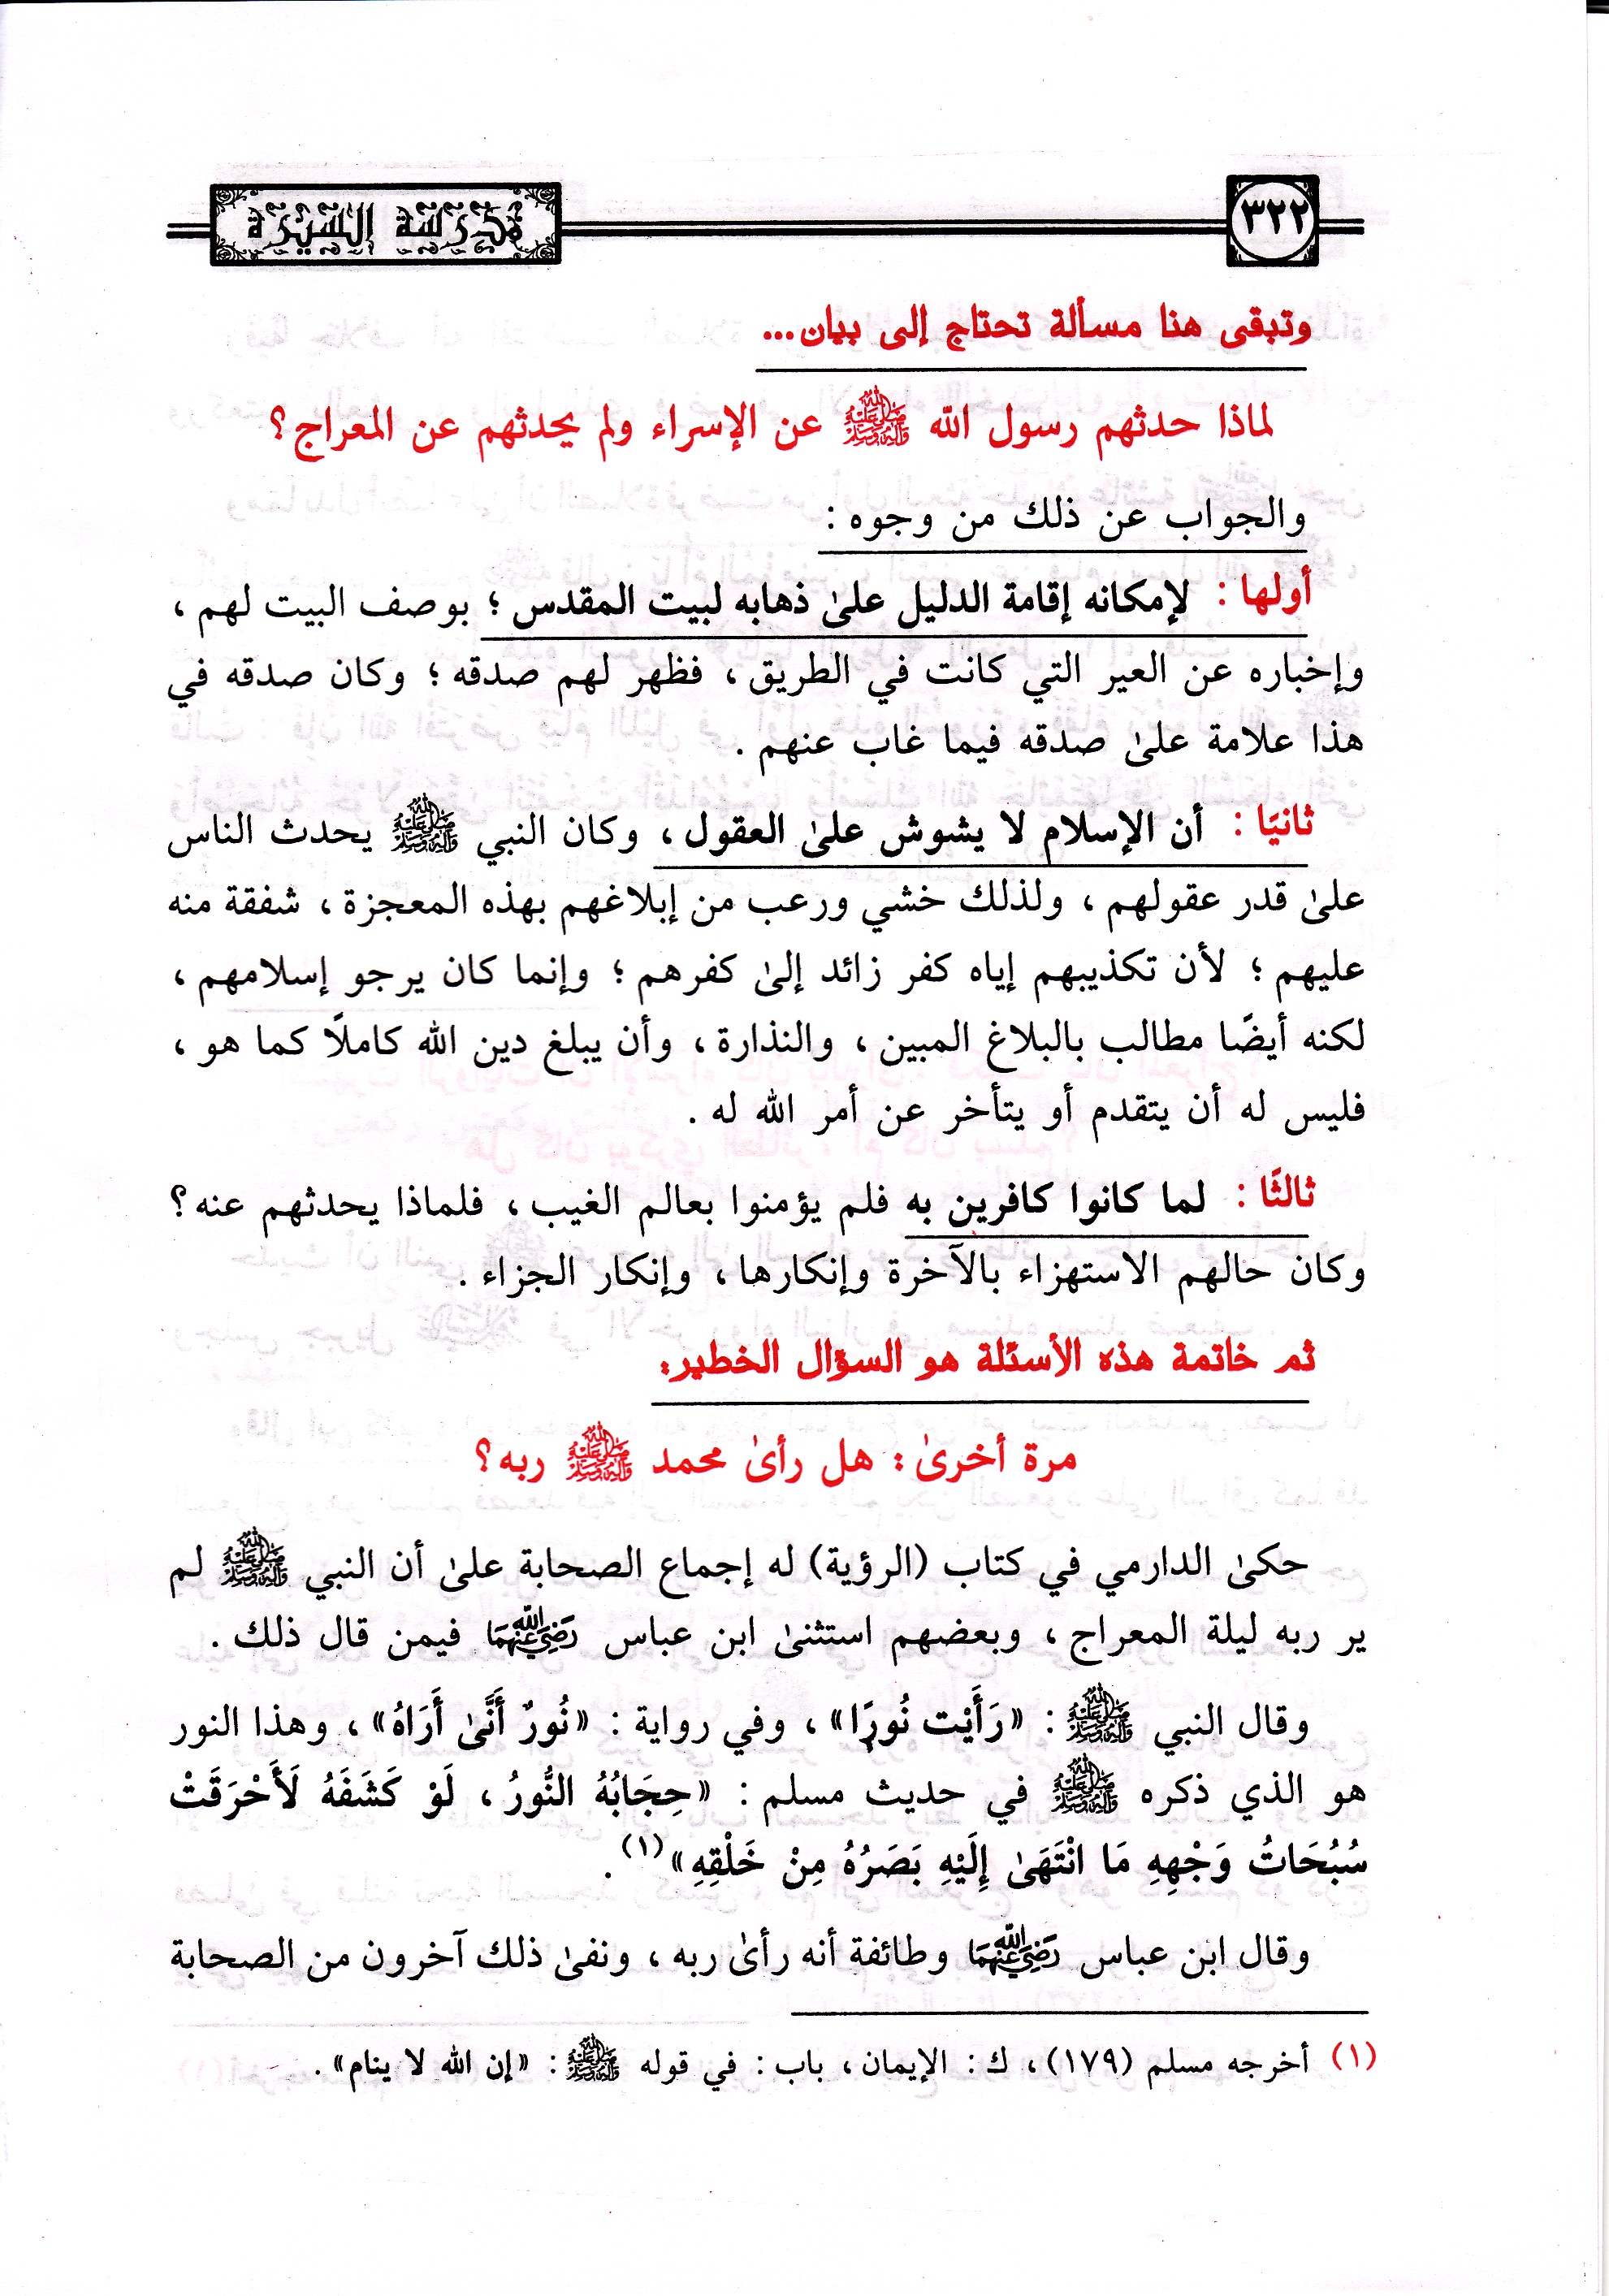 ٣٢٢
مدرسة السيرة
وتبقى هنا مسألة تحتاج إلى بيان...
لماذا حدثهم رسول الله ﷺ عن الإسراء ولم يحدثهم عن المعراج؟
والجواب عن ذلك من وجوه :
أولها : لإمكانه إقامة الدليل علىٰ ذهابه لبيت المقدس ؛ بوصف البيت لهم ،
وإخباره عن العير التي كانت في الطريق ، فظهر لهم صدقه ؛ وكان صدقه في
هذا علامة علىٰ صدقه فيما غاب عنهم .
ثانيًا : أن الإسلام لا يشوش علىٰ العقول ، وكان النبي ﷺ يحدث الناس
علىٰ قدر عقولهم ، ولذلك خشي ورعب من إبلاغهم بهذه المعجزة ، شفقة منه
عليهم ؛ لأن تكذيبهم إياه كفر زائد إلىٰ كفرهم ؛ وإنما كان يرجو إسلامهم ،
لكنه أيضًا مطالب بالبلاغ المبين ، والنذارة ، وأن يبلغ دين الله كاملًا كما هو ،
فليس له أن يتقدم أو يتأخر عن أمر الله له .
ثالثًا : لما كانوا كافرين به فلم يؤمنوا بعالم الغيب ، فلماذا يحدثهم عنه ؟
وكان حالهم الاستهزاء بالآخرة وإنكارها ، وإنكار الجزاء .
ثم خاتمة هذه الأسئلة هو السؤال الخطير:
مرة أخرىٰ : هل رأىٰ محمد ﷺ ربه ؟
حكىٰ الدارمي في كتاب (الرؤية) له إجماع الصحابة علىٰ أن النبي ﷺ لم
ير ربه ليلة المعراج ، وبعضهم استثنىٰ ابن عباس رَضِيَ اللَّهُ عَنْهُمَا فيمن قال ذلك .
وقال النبي ﷺ : «رَأَيْت نُورًا» ، وفي رواية : «نُورٌ أَنَّىٰ أَرَاهُ» ، وهذا النور
هو الذي ذكره ﷺ في حديث مسلم : «حِجَابُهُ النُّورُ ، لَوْ كَشَفَهُ لَأَحْرَقَتْ
سُبُحَاتُ وَجْهِهِ مَا انْتَهَىٰ إِلَيْهِ بَصَرُهُ مِنْ خَلْقِهِ»(١) .
وقال ابن عباس رَضِيَ اللَّهُ عَنْهُمَا وطائفة أنه رأىٰ ربه ، ونفىٰ ذلك آخرون من الصحابة
(١) أخرجه مسلم (١٧٩) ، ك : الإيمان ، باب : في قوله ﷺ : «إن الله لا ينام» .